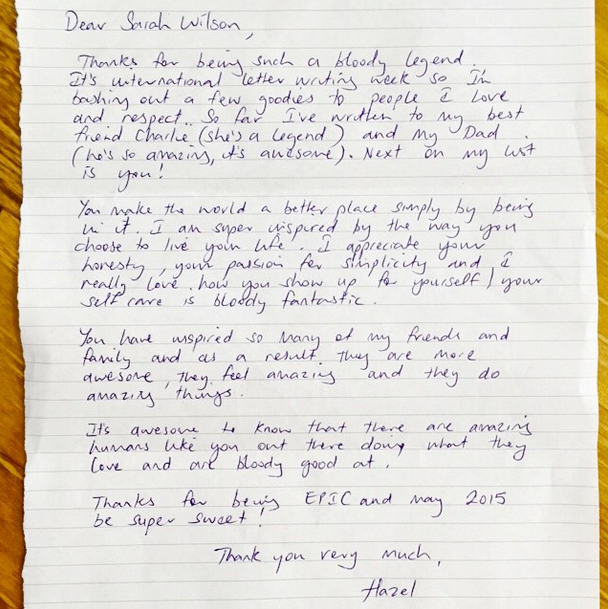 Dear Sarah Wilson,
Thanks for being such a bloody legend.
It's international letter writing week so I'm
bashing out a few goodies to people I love
and respect. So far I've written to my best
friend Charlie (she's a legend) and my Dad
(he's so amazing, it's awesome). Next on my list
is you!
You make the world a better place simply by being
in it. I am super inspired by the way you
choose to live your life. I appreciate your
honesty, your passion for simplicity and I
really love how you show up for yourself / your
self care is bloody fantastic.
You have inspired so many of my friends and
family and as a result they are more
awesome, they feel amazing and they do
amazing things.
It's awesome to know that there are amazing
humans like you out there doing what they
love and are bloody good at.
Thanks for being EPIC and may 2015
be super sweet!
Thank you very much,
Hazel